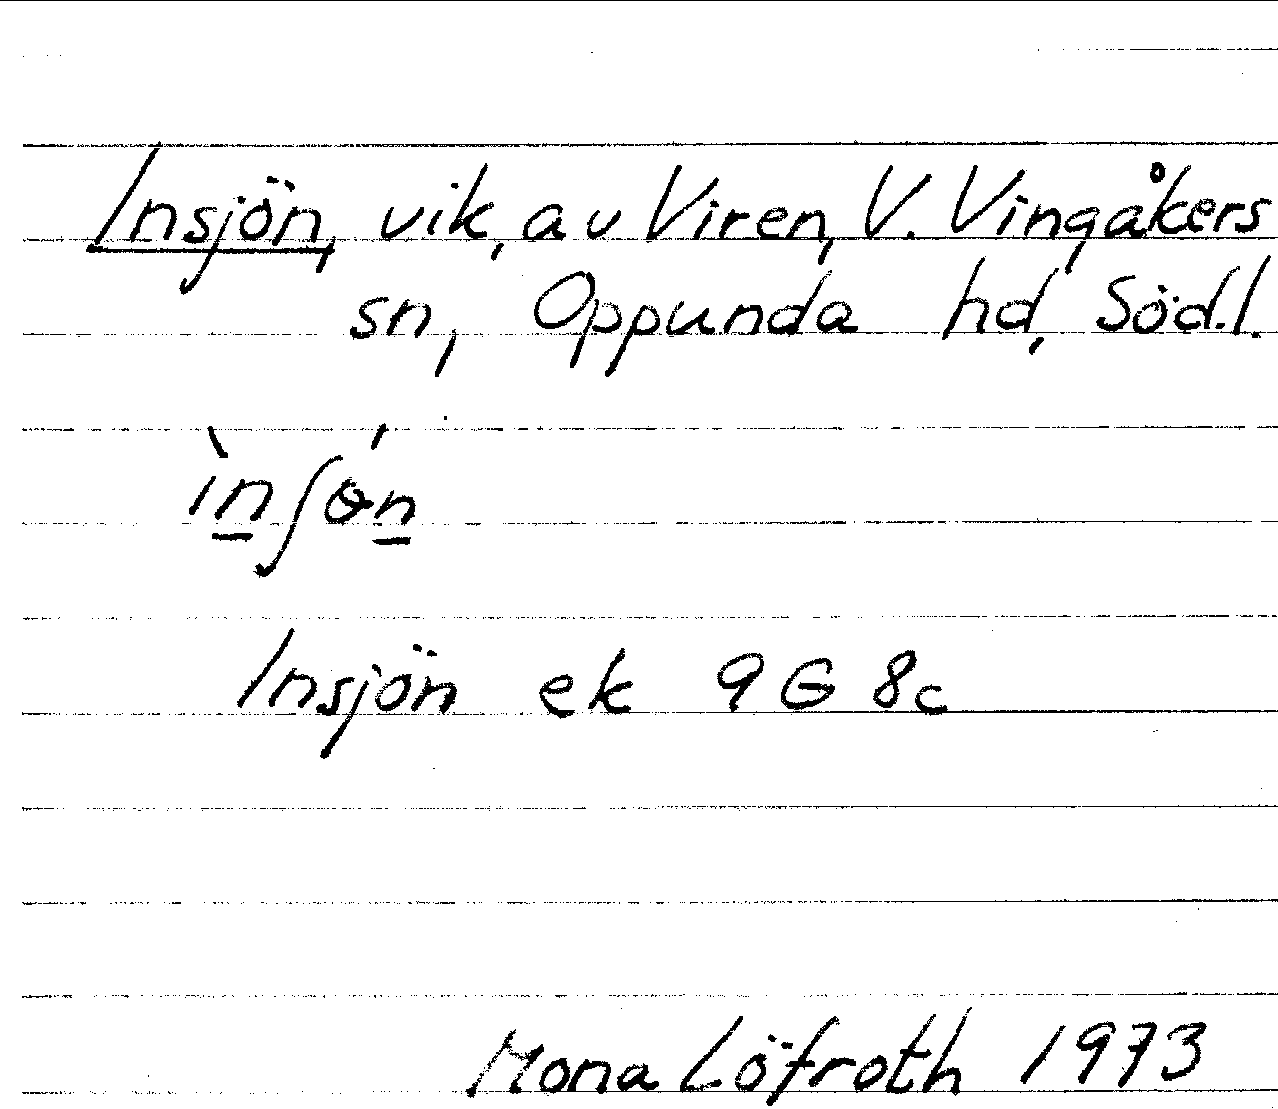 Insjön, vik, av Viren, V. Vingåkers
sn, Oppunda hd, Södl.
ìnʃɵ́n
Insjön ek 9G 8c
Mona Löfroth 1973